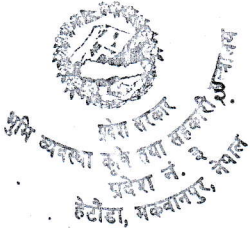 प्रदेश सरकार
भूमि व्यवस्था कृषि तथा सहकारी मन्त्रालय
प्रदेश नं. ३
हेटौडा, मकवानपुर, नेपाल